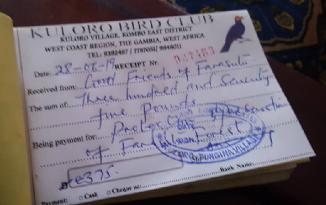 KULORO BIRD CLUB
KULORO VILLAGE, KOMBO EAST DISTRICT
WEST COAST REGION, THE GAMBIA, WEST AFRICA
Date: 28-06-19 RECEIPT No.
Received from: Friends of Farasuto
The sum of: Three hundred and Seventy
five Pounds
Being payment for:
of Forest
£375.
Payment: Cash Cheque no: Bank Name: